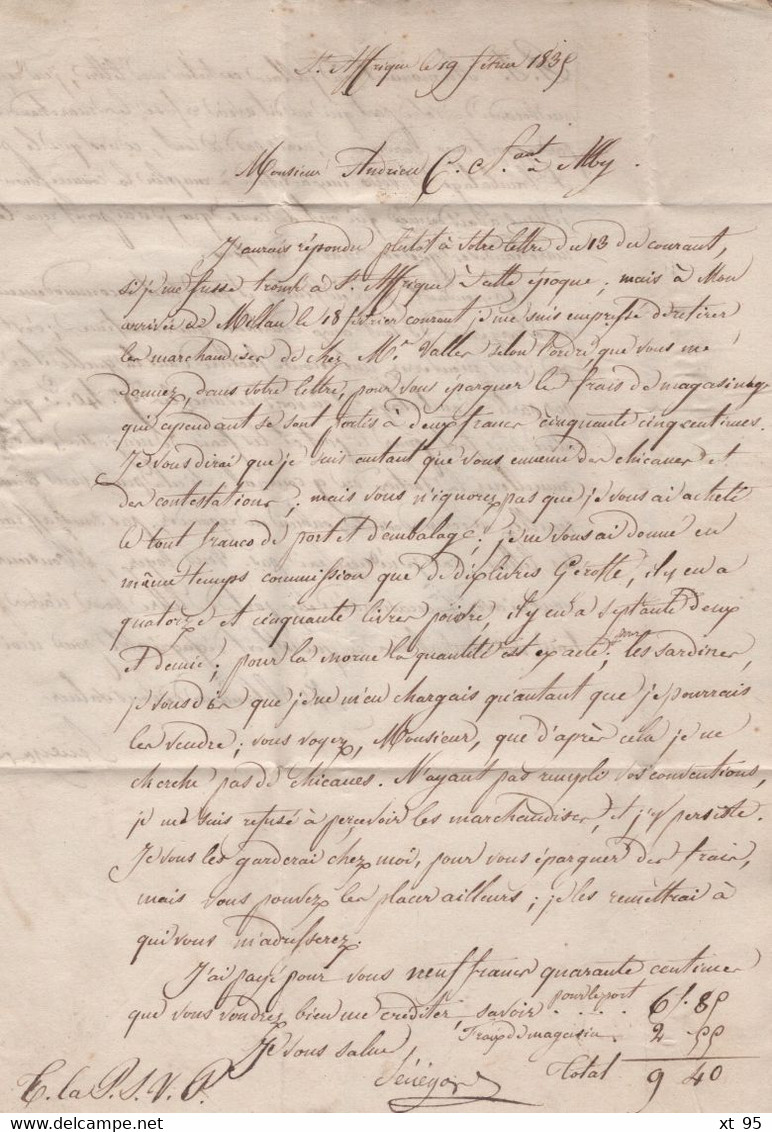 St. Affrique le 19 février 1835
Monsieur Andrieu C. à Alby.
J'aurais répondu plutot à votre lettre du 13 du courant,
si je me fusse trouvé à St. Affrique à cette époque; mais à Mon
arrivée de Millau le 18 février courant, je me suis empressé de retirer
les marchandises de chez Mr. Valles selon l'ordre que vous me
donnez, dans votre lettre, pour vous éparguer le frais de magasinage
qui cependant se sont portés à deux francs cinquante cinq centimes.
Je vous dirai que je suis autant que vous ennemi des chicanes et
des contestations; mais vous n'ignorez pas que je vous ai acheté
le tout franco de port et d'embalage; je ne vous ai donné en
même temps commission que de dix livres Gérofle, il y en a
quatorze et cinquante livres poivre, il y en a septante deux
et demie; pour la morue la quantité est exacte; les sardines,
je vous dis que je ne m'en chargais qu'autant que je pourrais
les vendre; vous voyez, Monsieur, que d'après cela je ne
cherche pas de chicanes. N'ayant pas rempli vos conventions,
je me suis refusé à percevoir les marchandises, et j'y persiste.
Je vous les garderai chez moi, pour vous éparguer des frais,
mais vous pouvez les placer ailleurs; je les remettrai à
qui vous m'adresserez.
J'ai payé pour vous neuf francs quarante centimes
que vous voudrez bien me créditer, savoir pour le port 6f. 85
Je vous salue, Frais de magasin 2 55
T. la P. S. V. P. Sénégas Total 9 40
xt 95